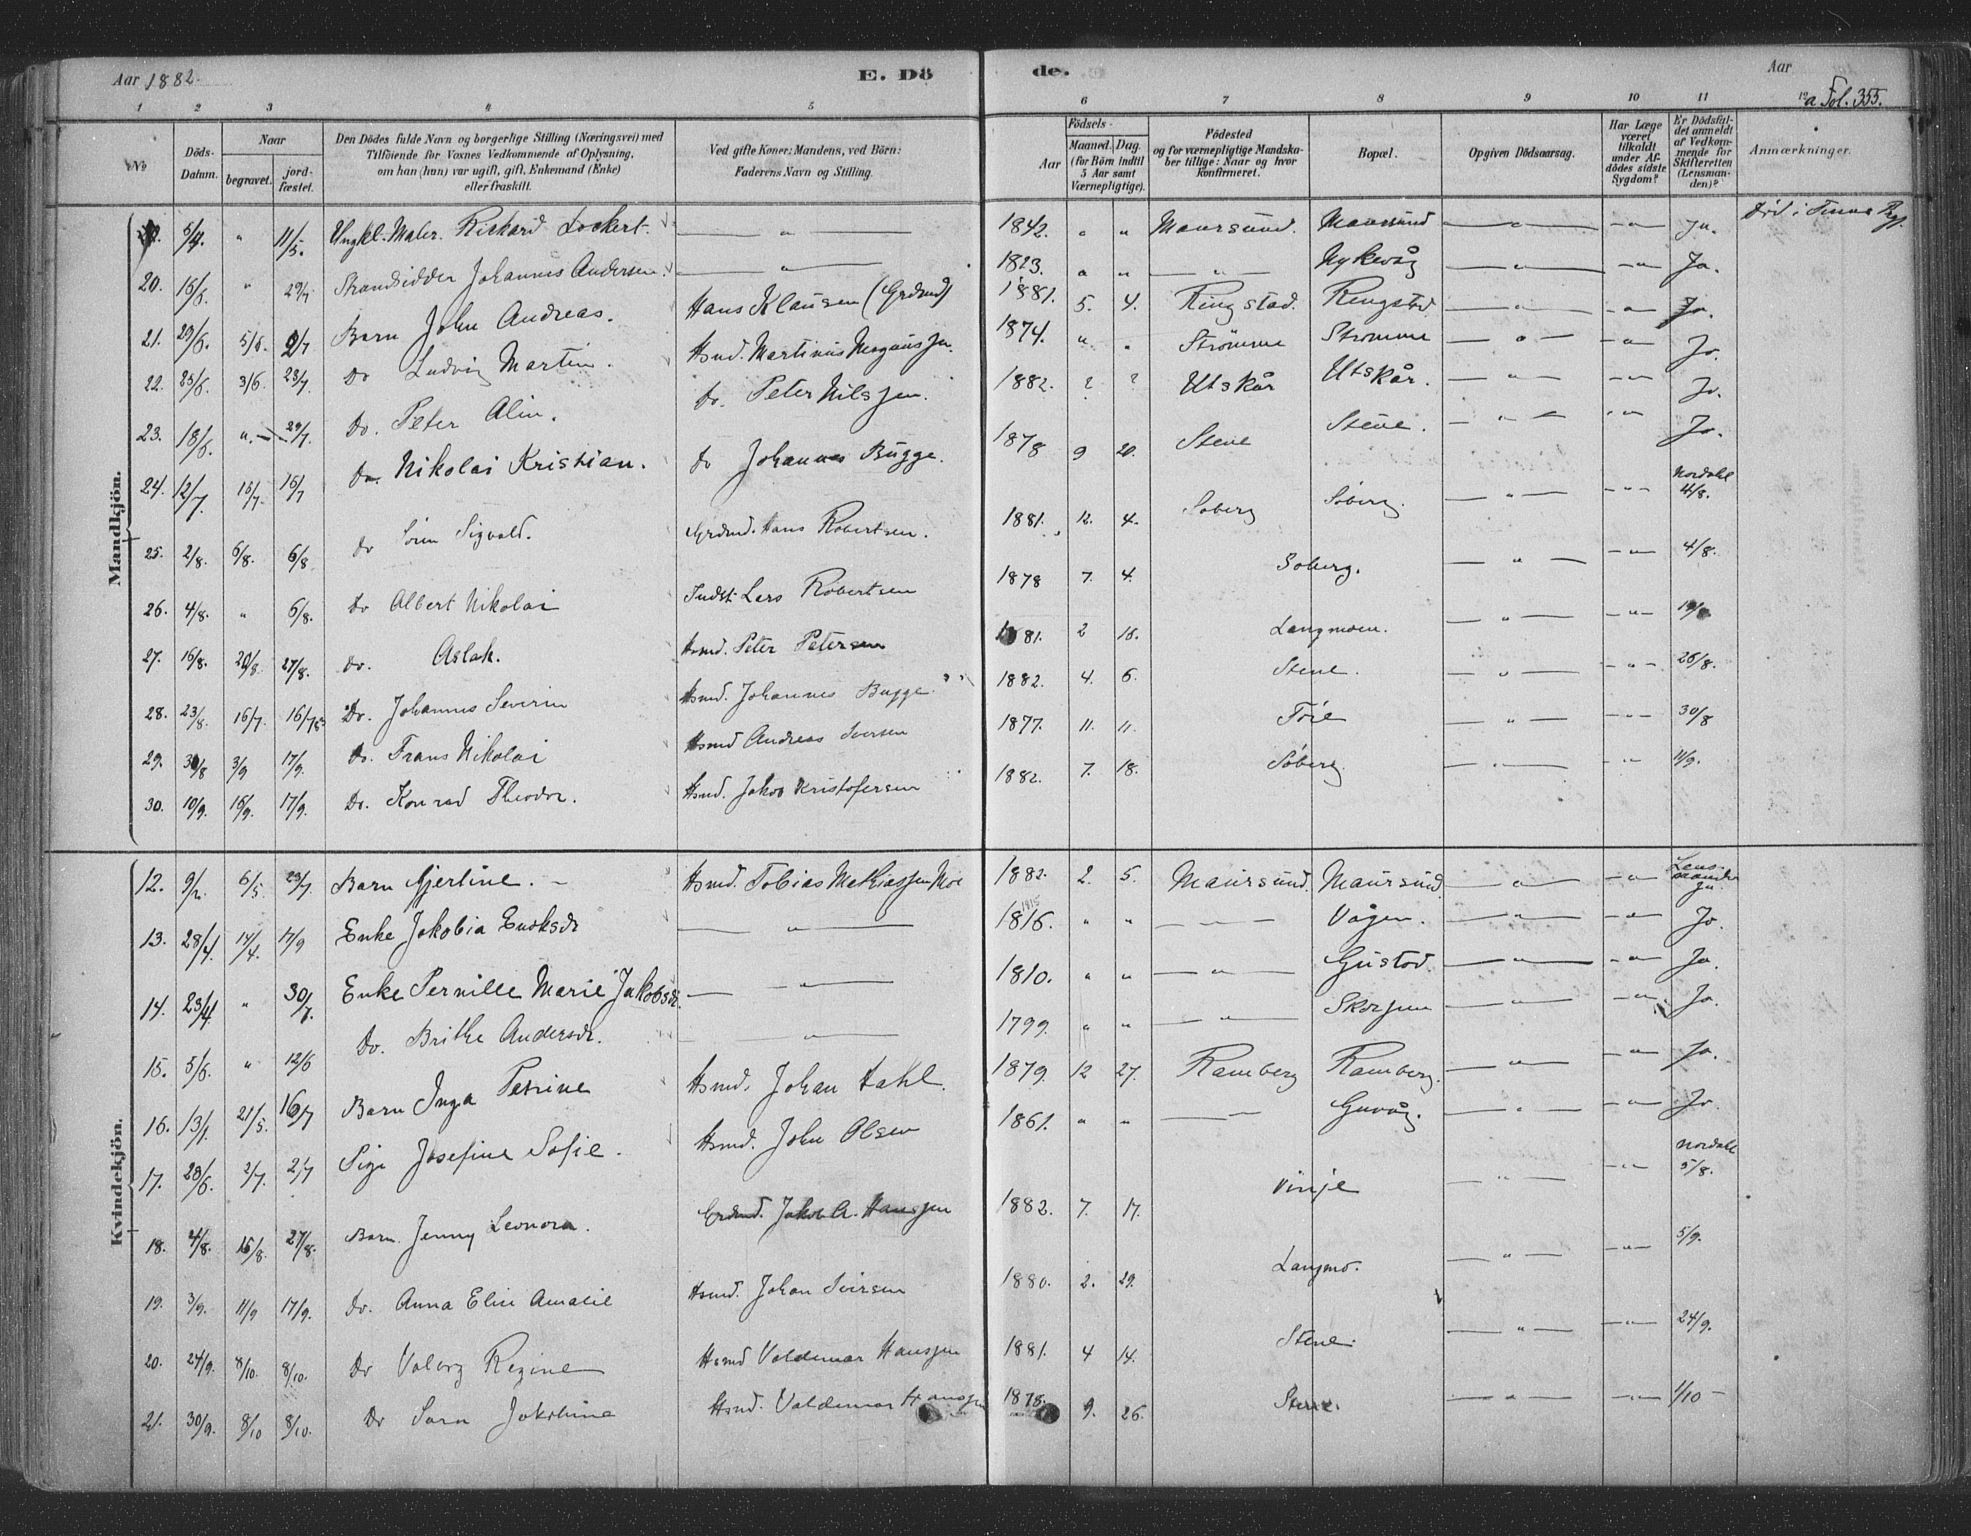 Aar 1882. E. Dö de. Aar
a Fol. 355.
1 2 3 4 5 6 7 8 9 10 11 12
No Döds-Datum. Naar begravet. jord-fæstet. Den Dödes fulde Navn og borgerlige Stilling (Næringsvei) med Tilföiende for Voxnes Vedkommende af Oplysning, om han (hun) var ugift, gift, Enkemand (Enke) eller fraskilt. Ved gifte Koner: Mandens, ved Börn: Faderens Navn og Stilling. Födsels- Aar Maaned. Dag. (for Börn indtil 5 Aar samt Værnepligtige). Födested og for værnepligtige Mandska-ber tillige: Naar og hvor konfirmeret. Bopæl. Opgiven Dödsaarsag. Har Læge været tilkaldt under Af-dödes sidste Sygdom? Er Dödsfal-det anmeldt af Vedkom-mende for Skifteretten (Lensman-den)? Anmærkninger.
Mandkjön.
5/4. " 11/5. Ungkl. Maler. Rikard Lockert. — " — 1842. " " Maursund. Maursund — " — — " — Ja. Död i
20. 16/5. " 29/7 Strandsidder Johannes Andersen. — " — 1823. " " — " — Nykvåg — " — — " — Ja.
21. 29/5. 5/6. 2/7 Barn John Andreas. Hans Klausen (Grdmd) 1881. 5. 4. Ringstad. Ringstad. — " — — " — Ja.
22. 25/5. 3/6. 23/7. Do Ludvig Martin. Hsmd. Martinus Magnussen. 1874. " " Strömme Strömme — " — — " — Jo.
23. 18/6. " — 29/7. Do. Peter Alin. Do. Peter Nilssen. 1882. ? ? Utskår Utskår. — " — — " — Jo.
24. 12/7. 15/7. 16/7 Do. Nikolai Kristian. Do Johannes Bugge. 1878 9 20. Stene Stene. — " — — " — Jo.
25. 2/8. 6/8. 6/8 Do Sören Sigvald. Grdmd. Hans Robertsen. 1881. 12. 4. Soberg Söberg. — " — — " — Nordahl 4/8.
26. 4/8. " 6/8. Do Albert Nikolai Indst. Lars Robertsen 1878 7. 4. Soberg. — " — — " — 4/8.
27. 16/8. 20/8. 27/8. Do. Aslak. Hsmd. Peter Petersen 1881. 2 16. Langmoen. — " — — " —
28. 23/8. 16/7. Do. Johannes Severin Hsmd. Johannes Bugge 1882. 4. 6. Stene. — " — — " — 26/8.
29. 30/8 3/9 17/9. Do. Frans Nikolai Hsmd Andreas Iversen 1877. 11. 11. Töre — " — — " — 30/8
30. 10/9. 16/9. 17/9. Do. Konrad Theodor. Hsmd. Jakob Kristofersen 1882. 7. 18. Söberg — " — — " — 11/9.
Kvindekjön.
12. 9/2. 6/5 23/7 Barn Gjertine. — Hsmd. Tobias Mathiassen Moe 1882. 2. 5. Maursund. Maursund — " — — " — Ja.
13. 28/4. 14/4. 17/9 Enke Jakobia Enoksdr — " — 1816. " " — " — Vågen. — " — — " — Jo.
14. 23/4. " 30/7. Enke Pernille Marie Jakobsdr. — " — 1810. " " — " — Gustad. — " — — " — Jo.
15. 5/6. " 12/6 Do. Brithe Andersdr. — " — 1799. " " — " — Skorpen — " — — " — Jo.
16. 13/5. 21/5. 16/7 Barn Inga Petrine Hsmd. Johan Dahl. 1879. 12 27. Ramberg Ramberg. — " — — " — Ja.
17. 28/6. 2/7. 2/7 Pige Josefine Sofie. Hsmd. John Olsen 1861. " " — " — Guvåg. — " — — " — Jo.
18. 4/8. 15/8. 27/8. Barn. Jenny Leonora. Grdmd. Jakob A. Hanssen 1882. 7. 17. Vinje — " — — " — Nordahl 5/8.
19. 3/9. 11/9 17/9. Do. Anna Elise Amalie Hsmd. Johan Iversen 1880. 2. 29. Langmo. — " — — " — 5/9.
20. 24/9. 8/10. 8/10. Do Valborg Regine Hsmd Valdemar Hanssen 1881. 4 14. Stene. — " — — " — 24/9.
21. 30/9. 8/10 8/10. Do Sara Jakobine Hsmd. Valdemar Hanssen 1878. 9. 26. Stene. — " — — " — 1/10 —